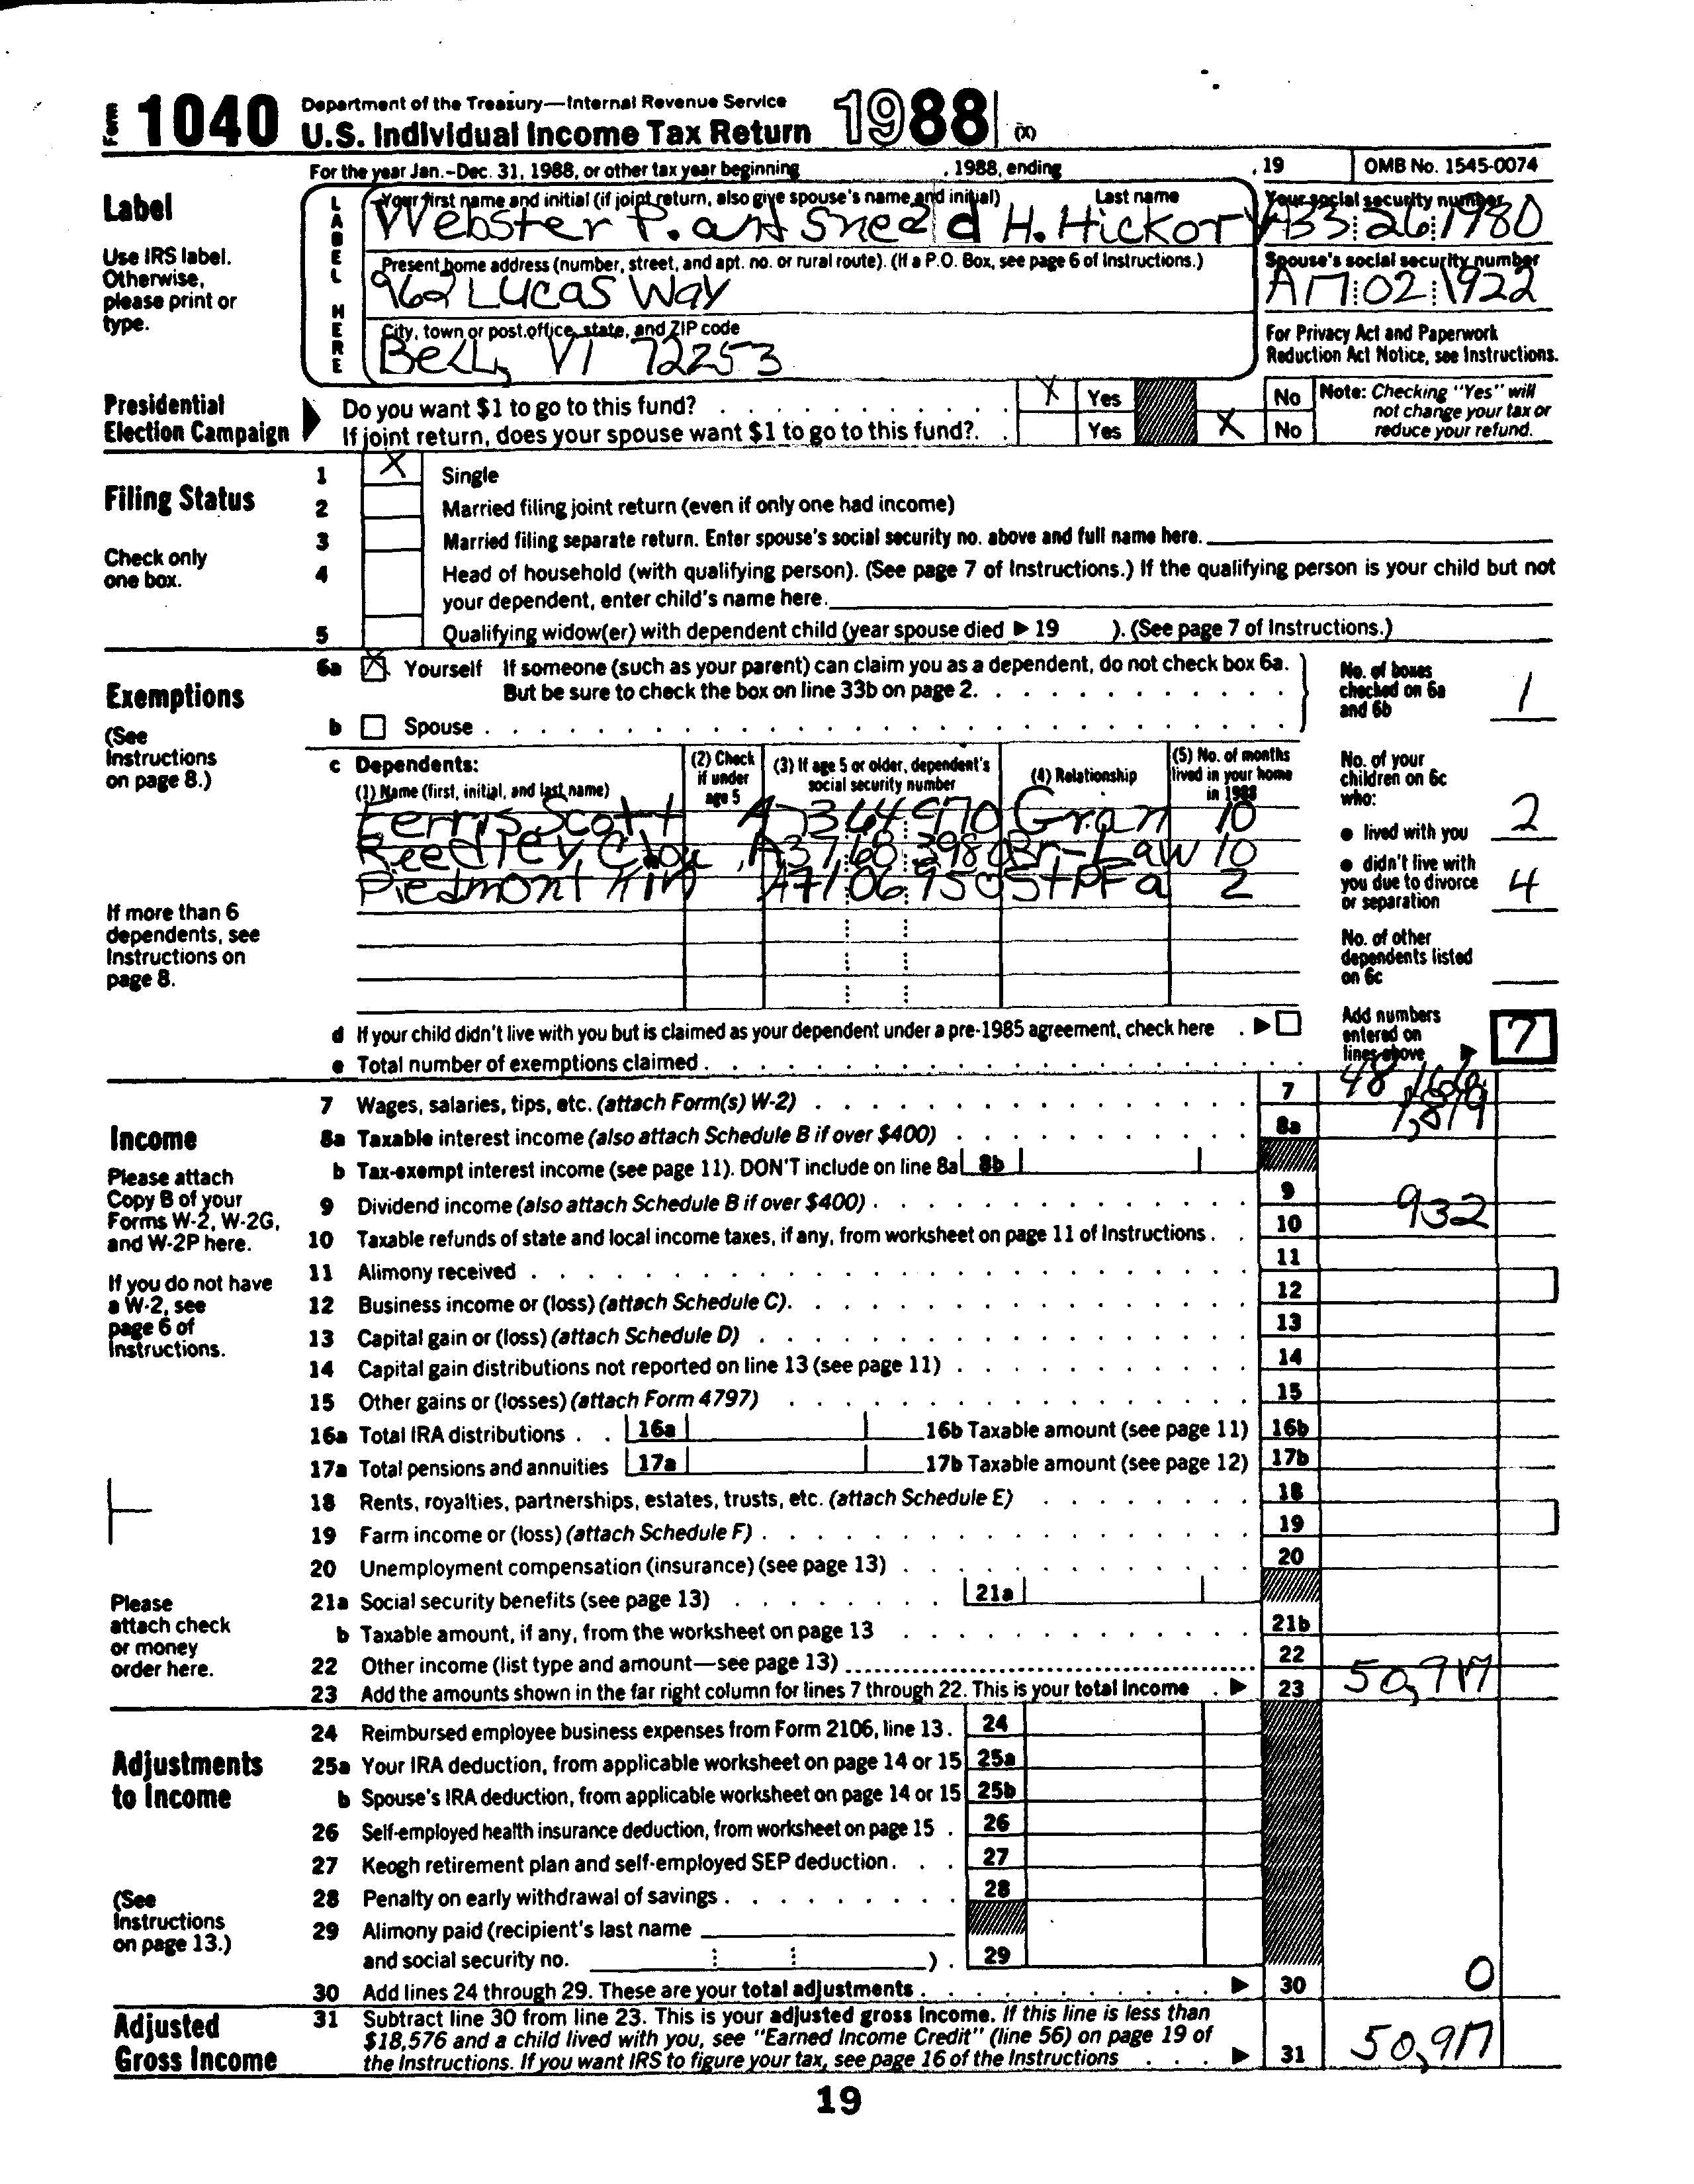 Form 1040 Department of the Treasury—Internal Revenue Service
U.S. Individual Income Tax Return 1988 (X)
For the year Jan.–Dec. 31, 1988, or other tax year beginning , 1988, ending , 19 OMB No. 1545-0074
Label
Use IRS label.
Otherwise,
please print or
type.
LABEL HERE
Your first name and initial (if joint return, also give spouse's name and initial) Last name
Webster P. and H. Hickory
Your social security number
A33 26 1980
Present home address (number, street, and apt. no. or rural route). (If a P.O. Box, see page 6 of Instructions.)
962 Lucas Way
Spouse's social security number
A17 02 1922
City, town or post office, state, and ZIP code
Bell, VI 72253
For Privacy Act and Paperwork
Reduction Act Notice, see Instructions.
Presidential
Election Campaign
Do you want $1 to go to this fund? X Yes No
If joint return, does your spouse want $1 to go to this fund? Yes X No
Note: Checking "Yes" will
not change your tax or
reduce your refund.
Filing Status
Check only
one box.
1 X Single
2 Married filing joint return (even if only one had income)
3 Married filing separate return. Enter spouse's social security no. above and full name here.
4 Head of household (with qualifying person). (See page 7 of Instructions.) If the qualifying person is your child but not
your dependent, enter child's name here.
5 Qualifying widow(er) with dependent child (year spouse died ▶ 19 ). (See page 7 of Instructions.)
Exemptions
(See
Instructions
on page 8.)
6a X Yourself If someone (such as your parent) can claim you as a dependent, do not check box 6a.
But be sure to check the box on line 33b on page 2.
b Spouse
No. of boxes
checked on 6a
and 6b 1
c Dependents:
(1) Name (first, initial, and last name)
(2) Check
if under
age 5
(3) If age 5 or older, dependent's
social security number
(4) Relationship
(5) No. of months
lived in your home
in 1988
Ferris, Scott Gran 10
Reedley, Br-Law 10
Piedmont, A71 06 950 StpFa 2
If more than 6
dependents, see
Instructions on
page 8.
No. of your
children on 6c
who:
● lived with you 2
● didn't live with
you due to divorce
or separation 4
No. of other
dependents listed
on 6c
d If your child didn't live with you but is claimed as your dependent under a pre-1985 agreement, check here ▶
e Total number of exemptions claimed
Add numbers
entered on
lines above ▶ 7
Income
Please attach
Copy B of your
Forms W-2, W-2G,
and W-2P here.
If you do not have
a W-2, see
page 6 of
Instructions.
Please
attach check
or money
order here.
7 Wages, salaries, tips, etc. (attach Form(s) W-2) 7
8a Taxable interest income (also attach Schedule B if over $400) 8a 1,819
b Tax-exempt interest income (see page 11). DON'T include on line 8a 8b
9 Dividend income (also attach Schedule B if over $400) 9
10 Taxable refunds of state and local income taxes, if any, from worksheet on page 11 of Instructions 10 932
11 Alimony received 11
12 Business income or (loss) (attach Schedule C) 12
13 Capital gain or (loss) (attach Schedule D) 13
14 Capital gain distributions not reported on line 13 (see page 11) 14
15 Other gains or (losses) (attach Form 4797) 15
16a Total IRA distributions 16a 16b Taxable amount (see page 11) 16b
17a Total pensions and annuities 17a 17b Taxable amount (see page 12) 17b
18 Rents, royalties, partnerships, estates, trusts, etc. (attach Schedule E) 18
19 Farm income or (loss) (attach Schedule F) 19
20 Unemployment compensation (insurance) (see page 13) 20
21a Social security benefits (see page 13) 21a
b Taxable amount, if any, from the worksheet on page 13 21b
22 Other income (list type and amount—see page 13) 22
23 Add the amounts shown in the far right column for lines 7 through 22. This is your total income ▶ 23 50,917
Adjustments
to Income
(See
Instructions
on page 13.)
24 Reimbursed employee business expenses from Form 2106, line 13 24
25a Your IRA deduction, from applicable worksheet on page 14 or 15 25a
b Spouse's IRA deduction, from applicable worksheet on page 14 or 15 25b
26 Self-employed health insurance deduction, from worksheet on page 15 26
27 Keogh retirement plan and self-employed SEP deduction 27
28 Penalty on early withdrawal of savings 28
29 Alimony paid (recipient's last name
and social security no. ) 29
30 Add lines 24 through 29. These are your total adjustments ▶ 30 0
Adjusted
Gross Income
31 Subtract line 30 from line 23. This is your adjusted gross income. If this line is less than
$18,576 and a child lived with you, see "Earned Income Credit" (line 56) on page 19 of
the Instructions. If you want IRS to figure your tax, see page 16 of the Instructions ▶ 31 50,917
19